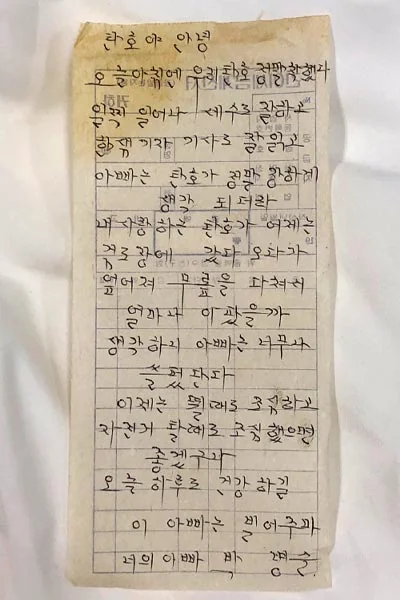 탄호야 안녕
오늘아침에 우리탄호 정말착했다
일찍 일어나 세수도 잘하고
학생기자 기사도 잘읽고
아빠는 탄호가 정말 장하게
생각 되더라
내 사랑하는 탄호가 어제는
직장에 갔다 오다가
엎어져 무릎을 다쳐서
얼마나 아팠을까
생각하니 아빠는너무나
슬펐단다
이제는 뛸때도 조심하고
자전거 탈때도 조심했으면
좋겠구나
오늘 하루도 건강 하길
이 아빠는 빌어주마
너의아빠 박 병술